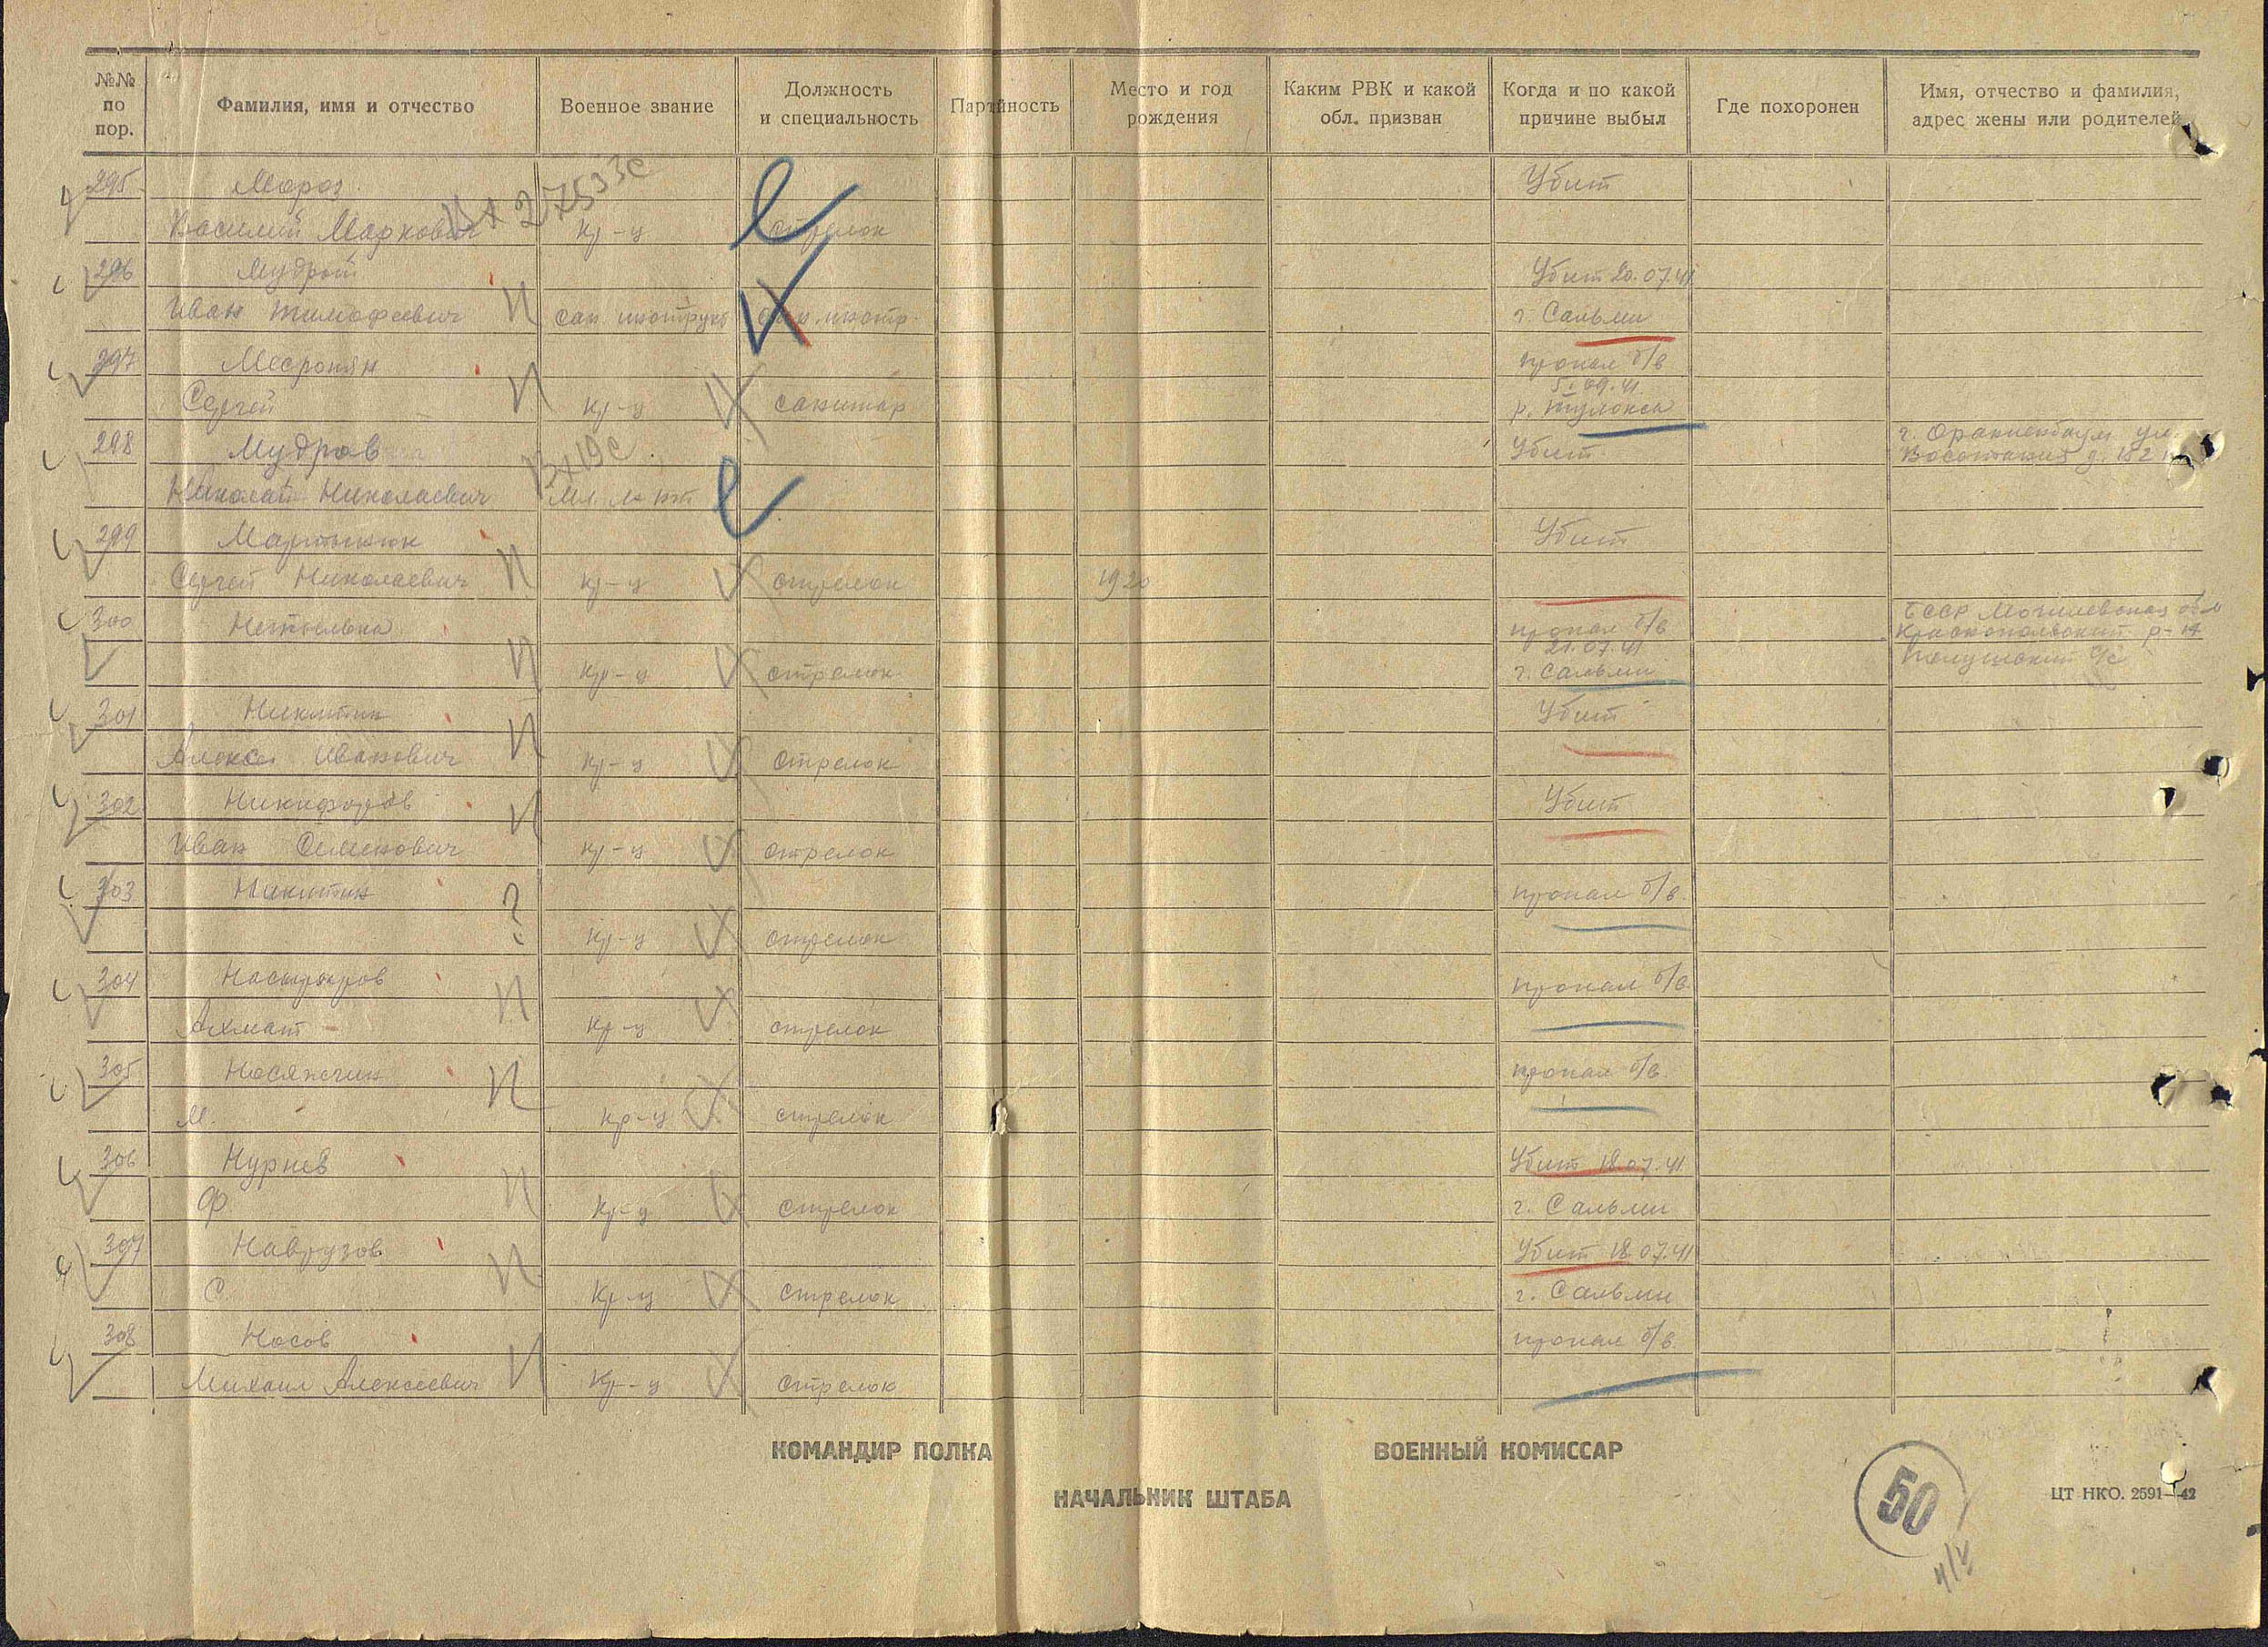 №№ по пор.
Фамилия, имя и отчество
Военное звание
Должность и специальность
Партийность
Место и год рождения
Каким РВК и какой обл. призван
Когда и по какой причине выбыл
Где похоронен
Имя, отчество и фамилия, адрес жены или родителей
295 Мороз Убит
Василий Маркович кр-ц стрелок
296 Мудрый Убит 20.07.41
Иван Тимофеевич сан. инструкт сан. инстр. г. Сальми
297 Месропян пропал б/в
5.09.41
Сергей кр-ц санитар р. Тулокса
298 Мудров Убит г. Ораниенбаум ул.
Николай Николаевич мл. л-нт
299 Мартынюк Убит
Сергей Николаевич кр-ц стрелок 1920
300 пропал б/в БССР Могилевская обл
21.07.41 Краснопольский р-н
кр-ц стрелок г. Сальми с/с
301 Никитин Убит
Алексей Иванович кр-ц стрелок
302 Никифоров Убит
Иван Семенович кр-ц стрелок
303 Никитин ? пропал б/в.
кр-ц стрелок
304 пропал б/в
Ахмат кр-ц стрелок
305 пропал б/в.
М. кр-ц стрелок
306 Нурнев Убит 18.07.41
Ф. кр-ц стрелок г. Сальми
307 Наврузов Убит 18.07.41
С. кр-ц стрелок г. Сальми
308 Носов пропал б/в.
Михаил Алексеевич кр-ц стрелок
КОМАНДИР ПОЛКА ВОЕННЫЙ КОМИССАР
НАЧАЛЬНИК ШТАБА
50
ЦТ НКО. 2591—42